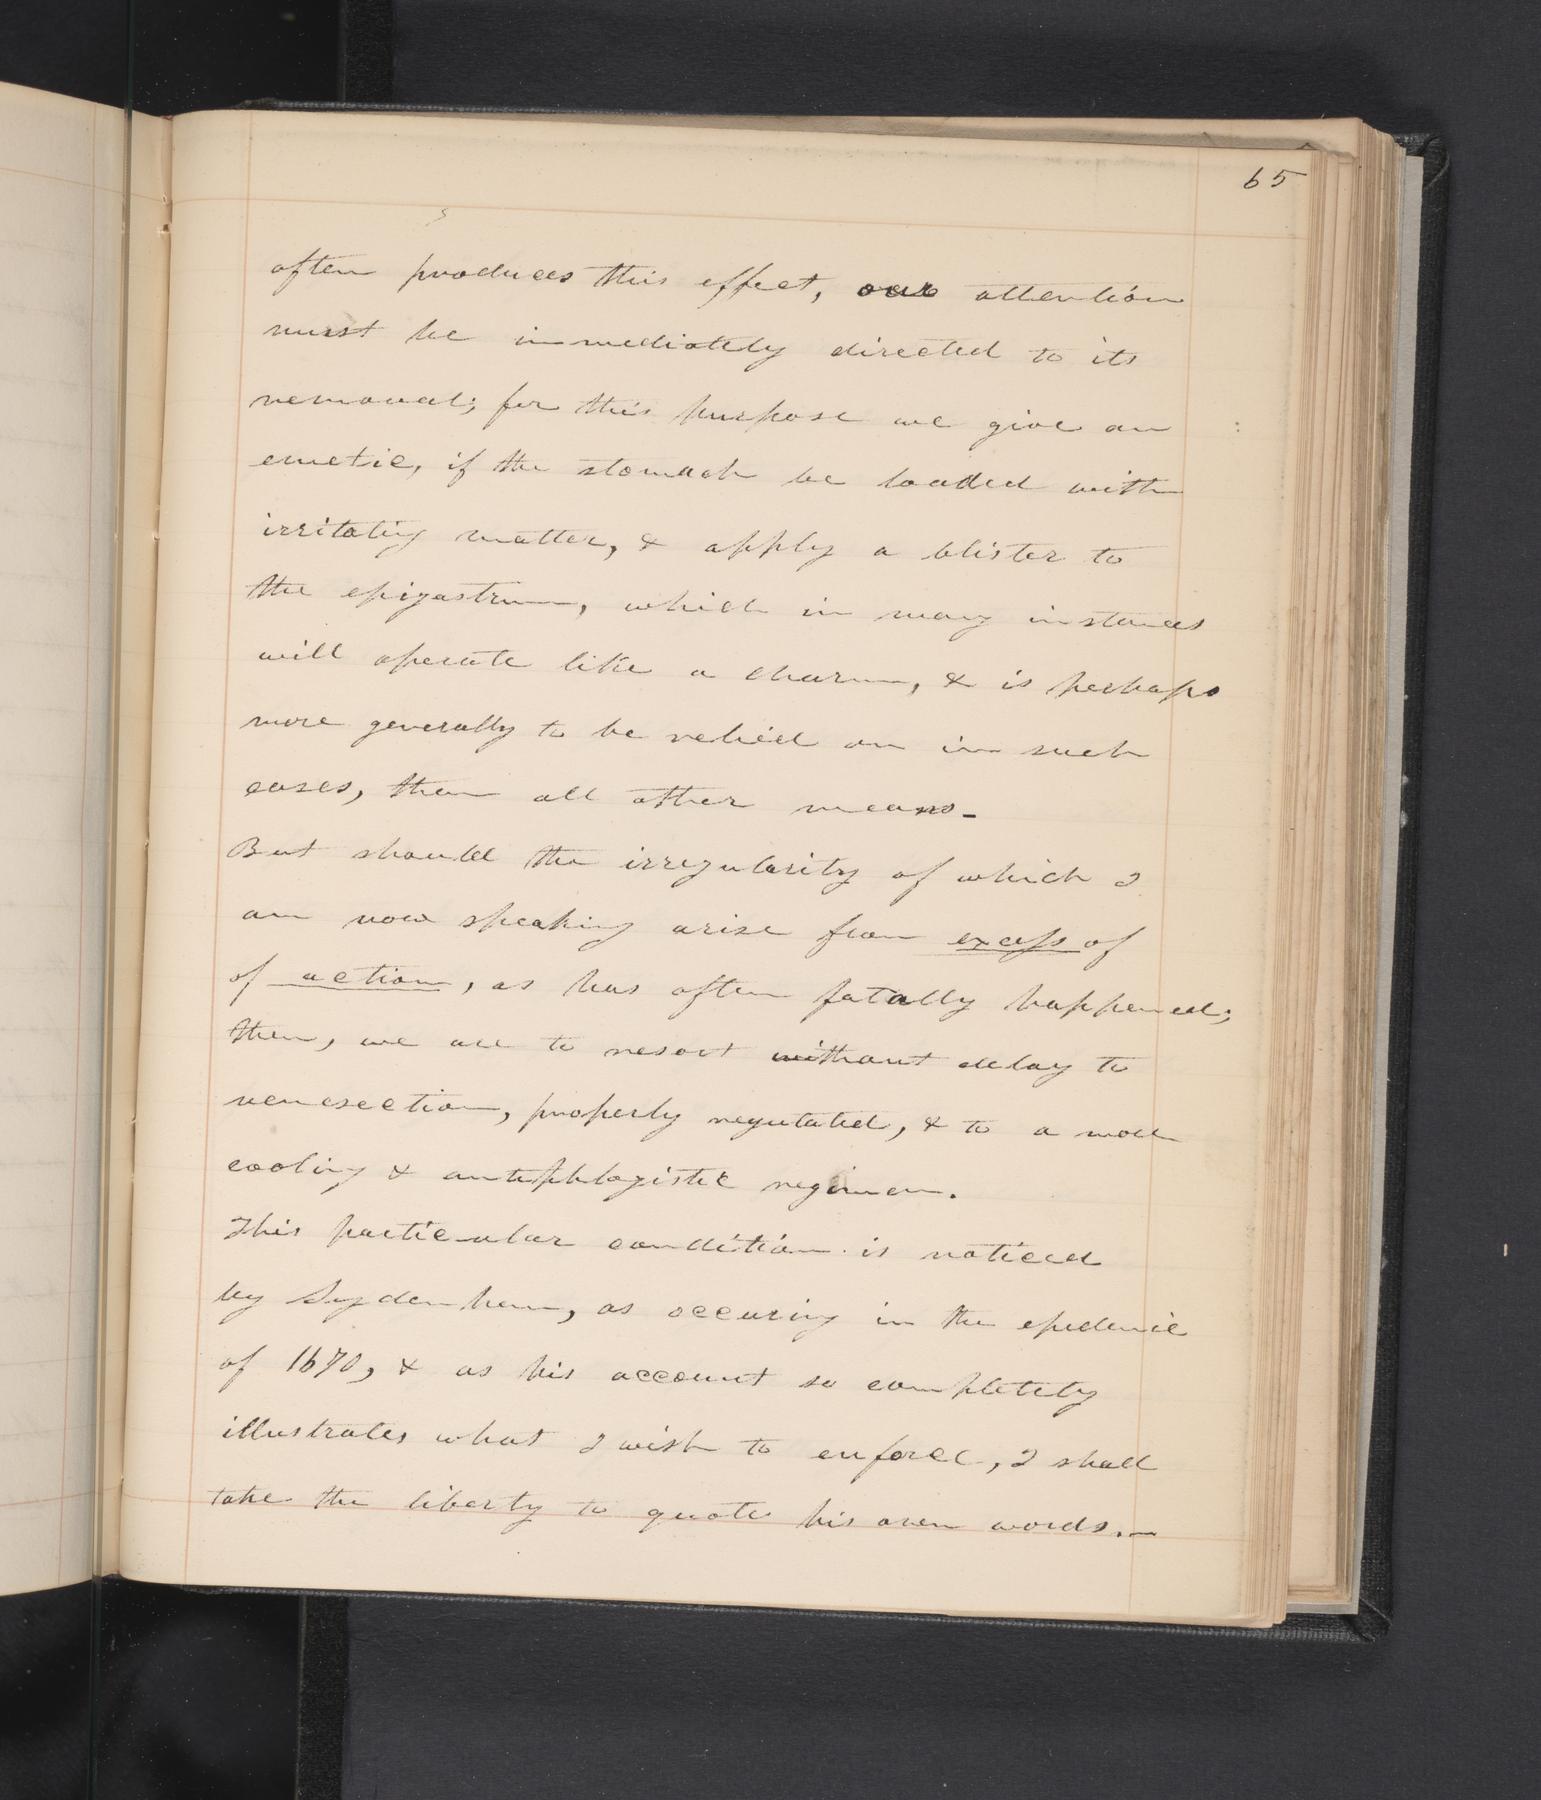 65
often produces this effect, our attention
must be immediately directed to its
removal; for this purpose we give an
emetic, if the stomach be loaded with
irritating matter, & apply a blister to
the epigastrum, which in many instances
will operate like a charm, & is perhaps
more generally to be relied on in such
cases, than all other means.
But should the irregularity of which I
am now speaking arise from excess of
of action, as has often fatally happened;
then, we are to resort without delay to
venesection, properly regulated, & to a most
cooling & antiphlogistic regimen.
This particular condition is noticed
by Sydenham, as occuring in the epidemic
of 1670, & as his account so completely
illustrates what I wish to enforce, I shall
take the liberty to quote his own words.—